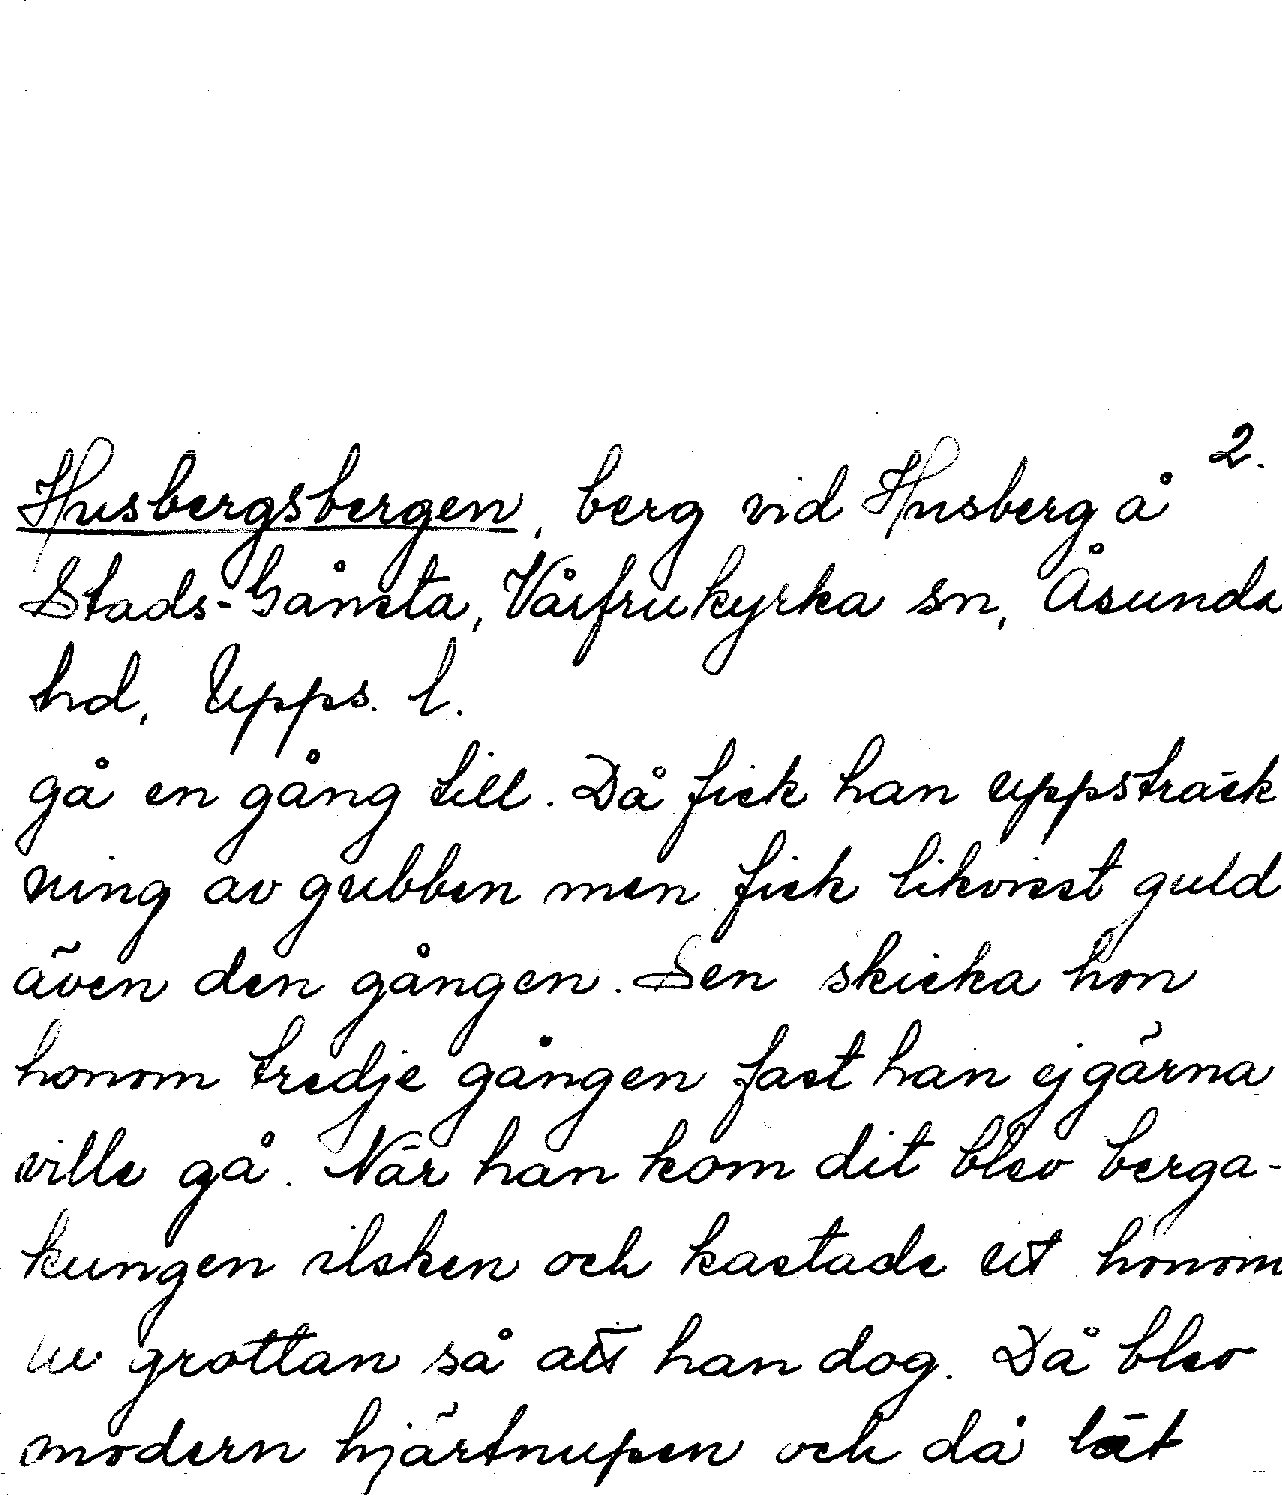 2.
Husbergsbergen, berg vid Husberg å
Stads-Gånsta, Vårfrukyrka sn, Åsunda
hd, Upps. l.
gå en gång till. Då fick han uppsträck
ning av gubben men fick likvisst guld
även den gången. Sen skicka hon
honom tredje gången fast han ej gärna
ville gå. När han kom dit blev berga-
kungen ilsken och kastade ut honom
ur grottan så att han dog. Då blev
modern hjärtnupen och då lät